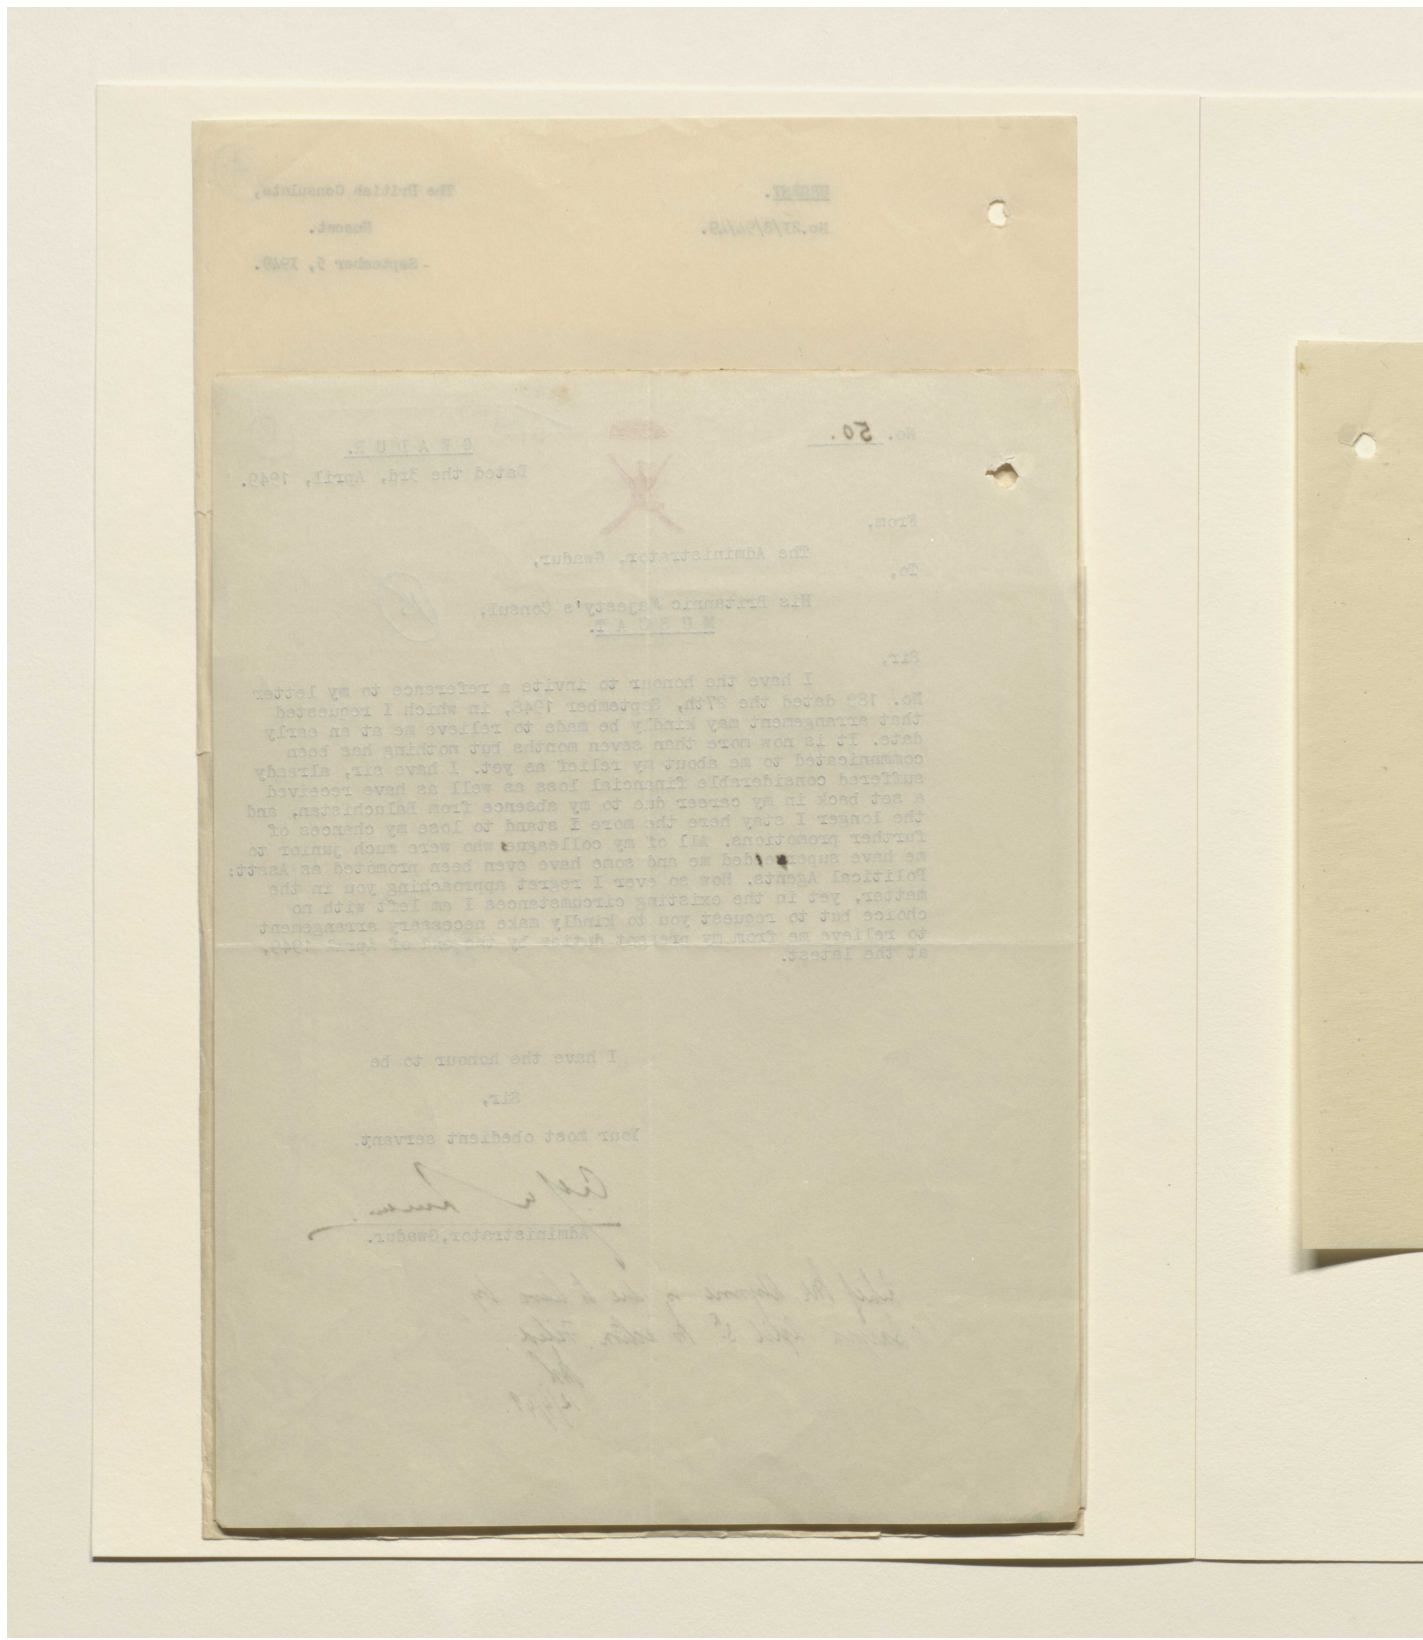 URGENT.
The British Consulate,
No.
Muscat.
September 5, 1949.
No. 50.
G W A D U R.
Dated the 3rd, April, 1949.
From,
The Administrator, Gwadur,
To,
His Britannic Majesty's Consul,
M U S C A T.
Sir,
I have the honour to invite a reference to my letter
No. 189 dated the 27th, September 1948, in which I requested
that arrangement may kindly be made to relieve me at an early
date. It is now more than seven months but nothing has been
communicated to me about my relief as yet. I have sir, already
suffered considerable financial loss as well as have received
a set back in my career due to my absence from Baluchistan, and
the longer I stay here the more I stand to lose my chances of
further promotions. All of my colleague who were much junior to
me have superceded me and some have even been promoted as Asstt:
Political Agents. How so ever I regret approaching you in the
metter, yet in the existing circumstances I am left with no
choice but to request you to kindly make necessary arrangement
to relieve me from my present duties by the end of April 1949,
at the latest.
I have the honour to be
Sir,
Your most obedient servant.
Administrator,Gwadur.